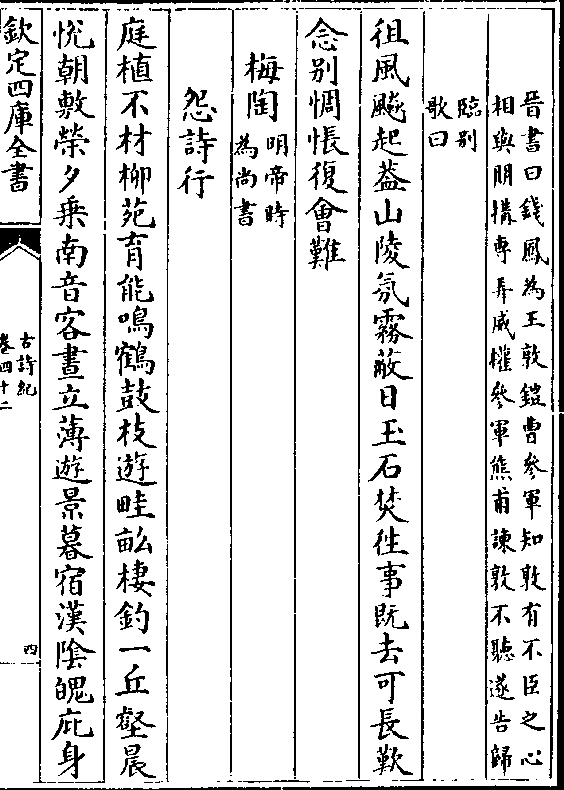 晉書曰錢鳳為王敦鎧曹參軍知敦有不臣之心
相與朋搆專弄威權參軍熊甫諫敦不聽遂告歸
臨别
歌曰
徂風飈起葢山陵氛霧蔽日玉石焚徃事既去可長歎
念别惆悵復會難
梅陶
明帝時
為尚書
怨詩行
庭植不材柳苑育能鳴鶴鼓枝遊畦畝棲釣一丘壑晨
悅朝敷榮夕乗南音客晝立薄遊景暮宿漢陰魄庇身
欽定四庫全書
古詩紀
卷四十二
四